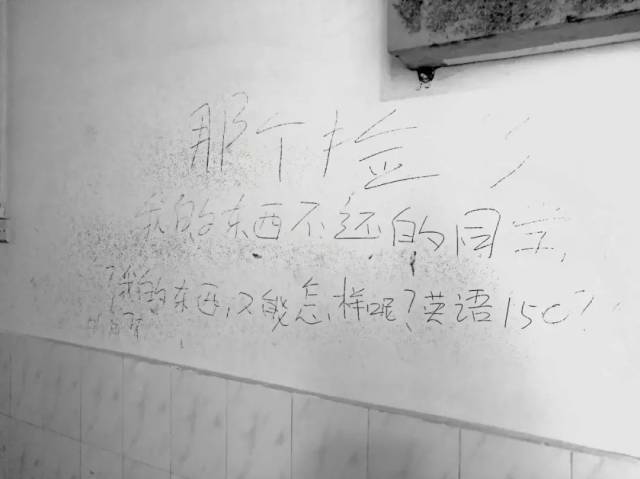 那个捡
我的东西不还的同学,
我的东西,又能怎样呢?英语150?